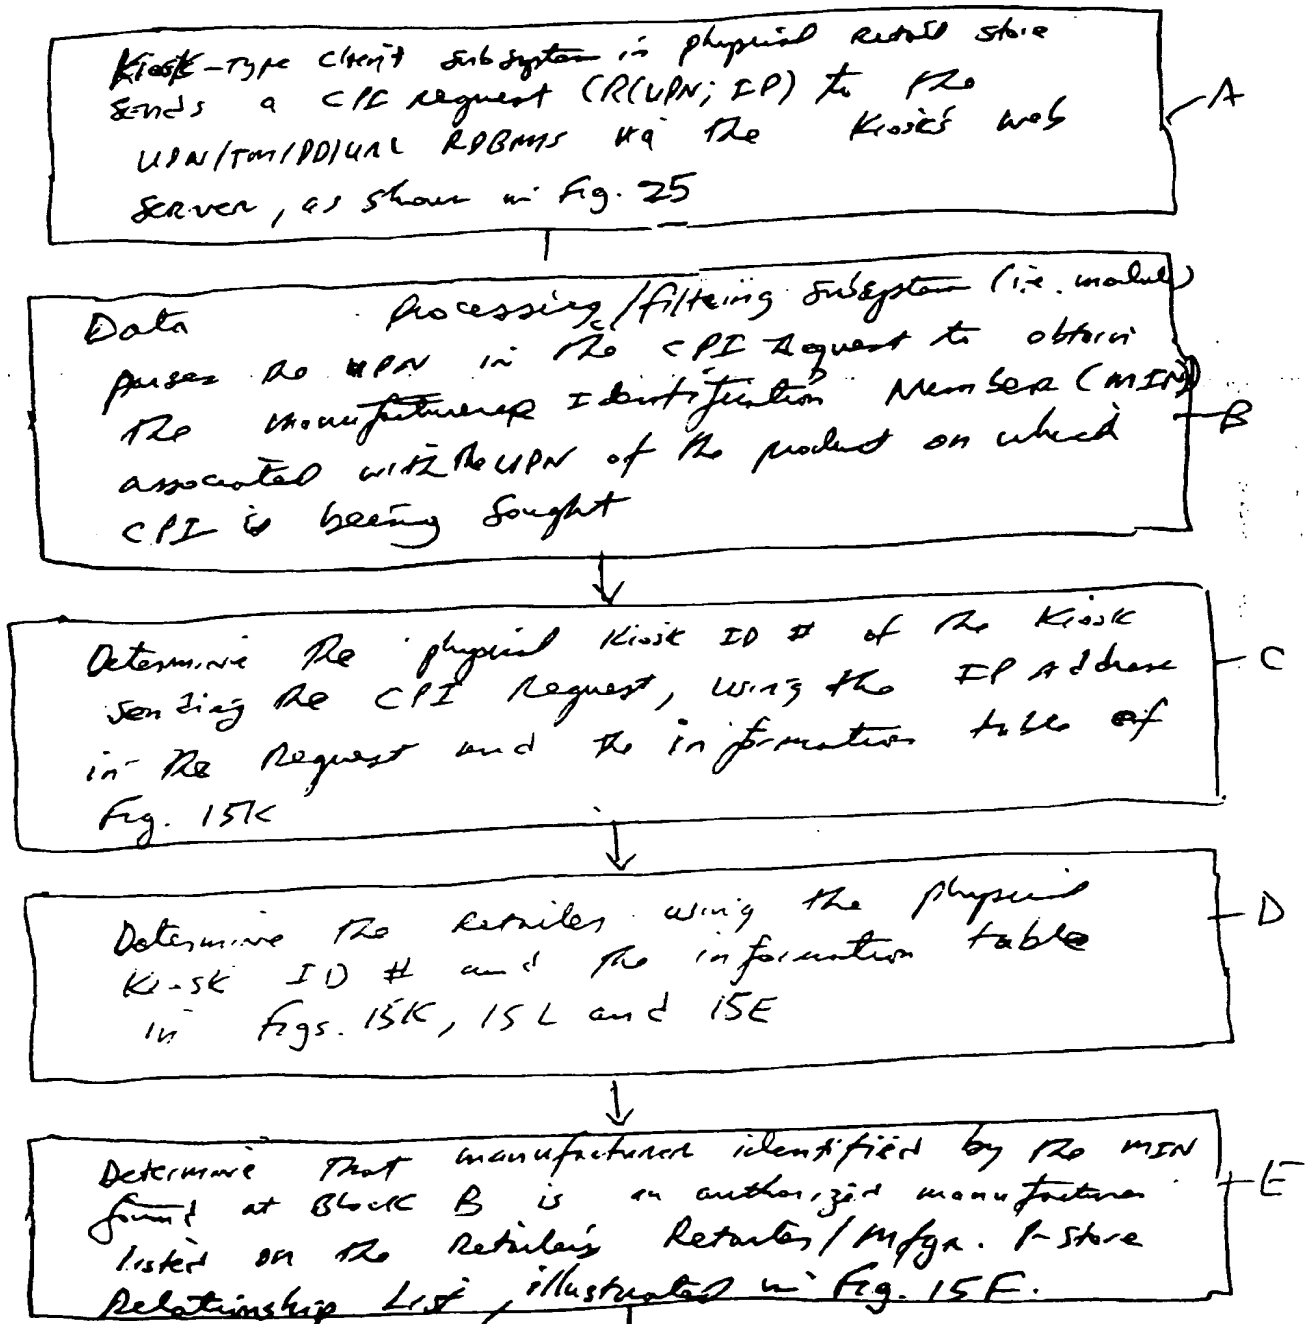 Kiosk-Type Client Subsystem in physical retail store
sends a CPI request (R(UPN; IP) to the
UPN/TM/PD/URL RDBMS via the Kiosk's web
server, as shown in Fig. 25
A
Data Processing/filtering Subsystem (i.e. module)
parses the UPN in the CPI Request to obtain
the manufacturer Identification Number (MIN)
associated with the UPN of the product on which
CPI is being sought
B
Determine the physical Kiosk ID # of the Kiosk
sending the CPI Request, using the IP Address
in the Request and the information table of
Fig. 15K
C
Determine the retailer using the physical
Kiosk ID # and the information table
in Figs. 15K, 15L and 15E
D
Determine that manufacturer identified by the MIN
found at Block B is an authorized manufacturer
listed on the Retailer's Retailer/Mfgr. P-Store
Relationship List, illustrated in Fig. 15F.
E